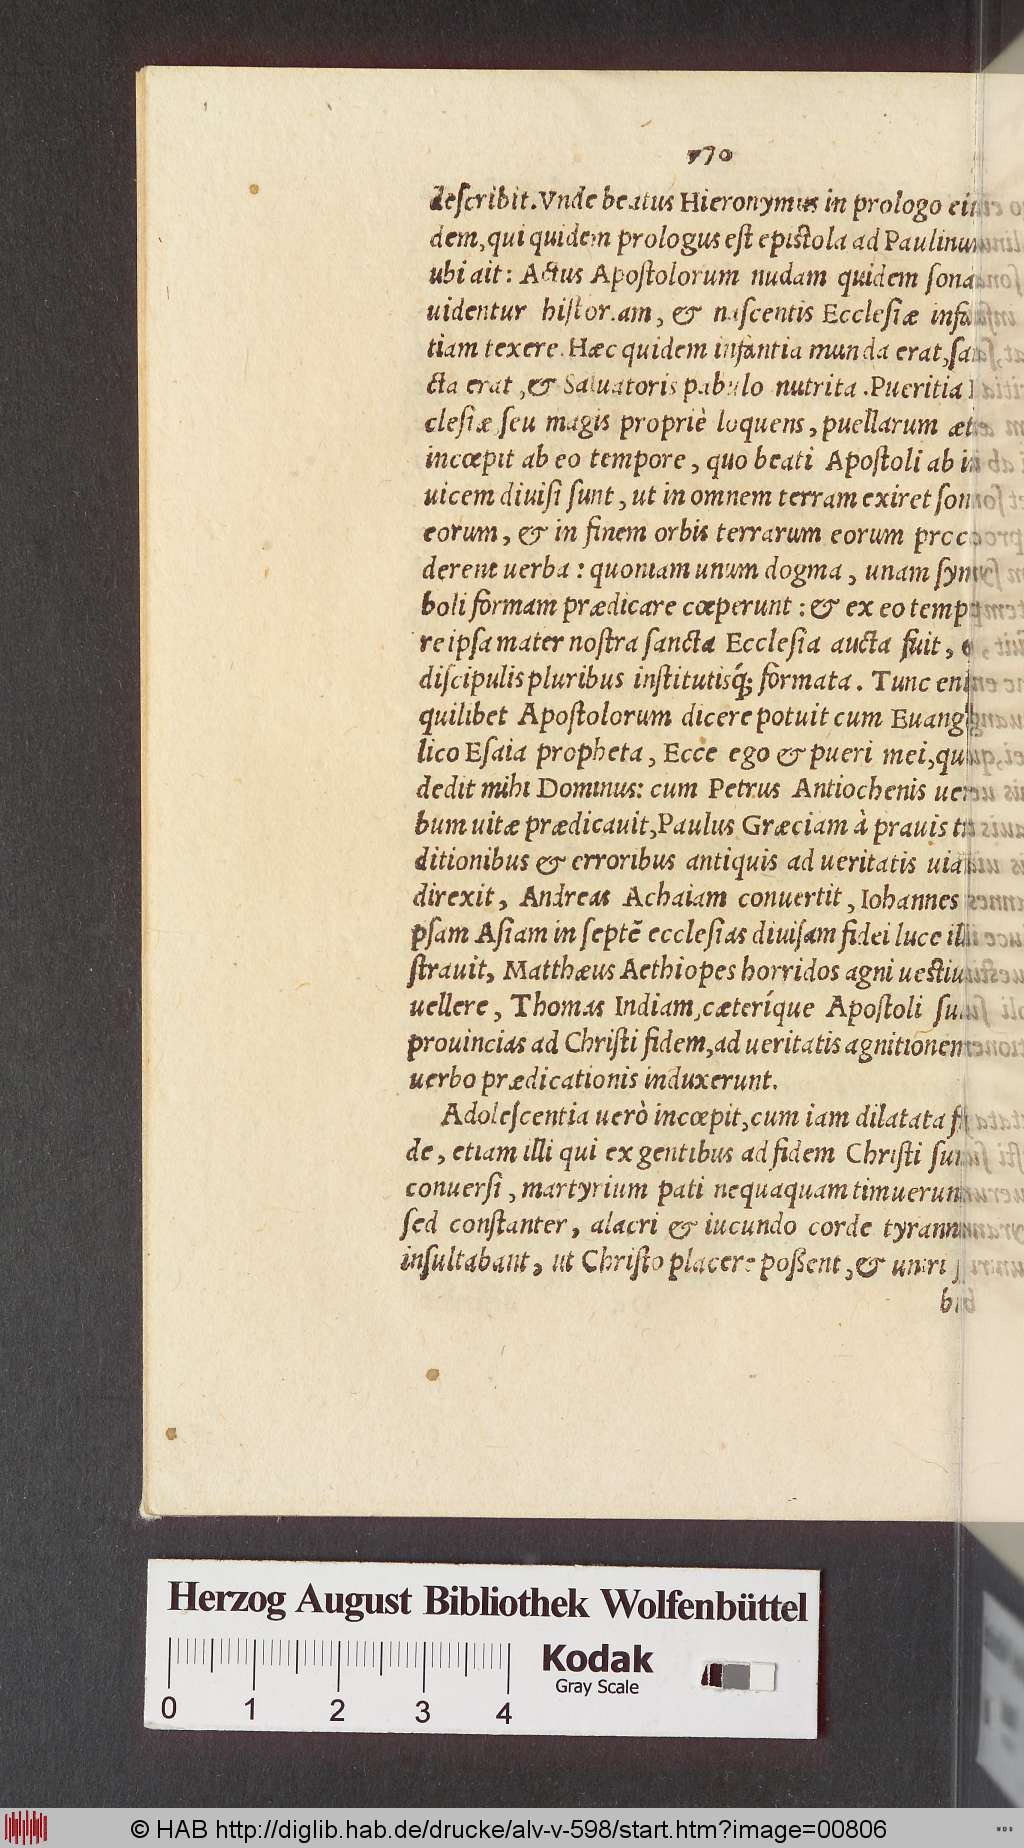 770
describit. Vnde beatus Hieronymus in prologo eiu
dem, qui quidem prologus est epistola ad Paulinum
ubi ait: Actus Apostolorum nudam quidem sona
uidentur historiam, & nascentis Ecclesiæ infa
tiam texere. Hæc quidem infantia munda erat, san
cta erat, & Saluatoris pabulo nutrita. Pueritia
clesiæ seu magis propriè loquens, puellarum æt
incœpit ab eo tempore, quo beati Apostoli ab in
uicem diuisi sunt, ut in omnem terram exiret son
eorum, & in finem orbis terrarum eorum proce
derent uerba: quoniam unum dogma, unam sym
boli formam prædicare cœperunt: & ex eo tempo
re ipsa mater nostra sancta Ecclesia aucta fuit,
discipulis pluribus institutisq́; formata. Tunc eni
quilibet Apostolorum dicere potuit cum Euange
lico Esaia propheta, Ecce ego & pueri mei, quos
dedit mihi Dominus: cum Petrus Antiochenis uer
bum uitæ prædicauit, Paulus Græciam à prauis tra
ditionibus & erroribus antiquis ad ueritatis uiam
direxit, Andreas Achaiam conuertit, Iohannes
psam Asiam in septẽ ecclesias diuisam fidei luce illu
strauit, Matthæus Aethiopes horridos agni uestiuit
uellere, Thomas Indiam, cæteríque Apostoli suas
prouincias ad Christi fidem, ad ueritatis agnitionem
uerbo prædicationis induxerunt.
Adolescentia uerò incœpit, cum iam dilatata fi
de, etiam illi qui ex gentibus ad fidem Christi sunt
conuersi, martyrium pati nequaquam timuerunt
sed constanter, alacri & iucundo corde tyrannis
insultabant, ut Christo placere possent, & uniri
bi
Herzog August Bibliothek Wolfenbüttel
0 1 2 3 4
Kodak
Gray Scale
© HAB http://diglib.hab.de/drucke/alv-v-598/start.htm?image=00806